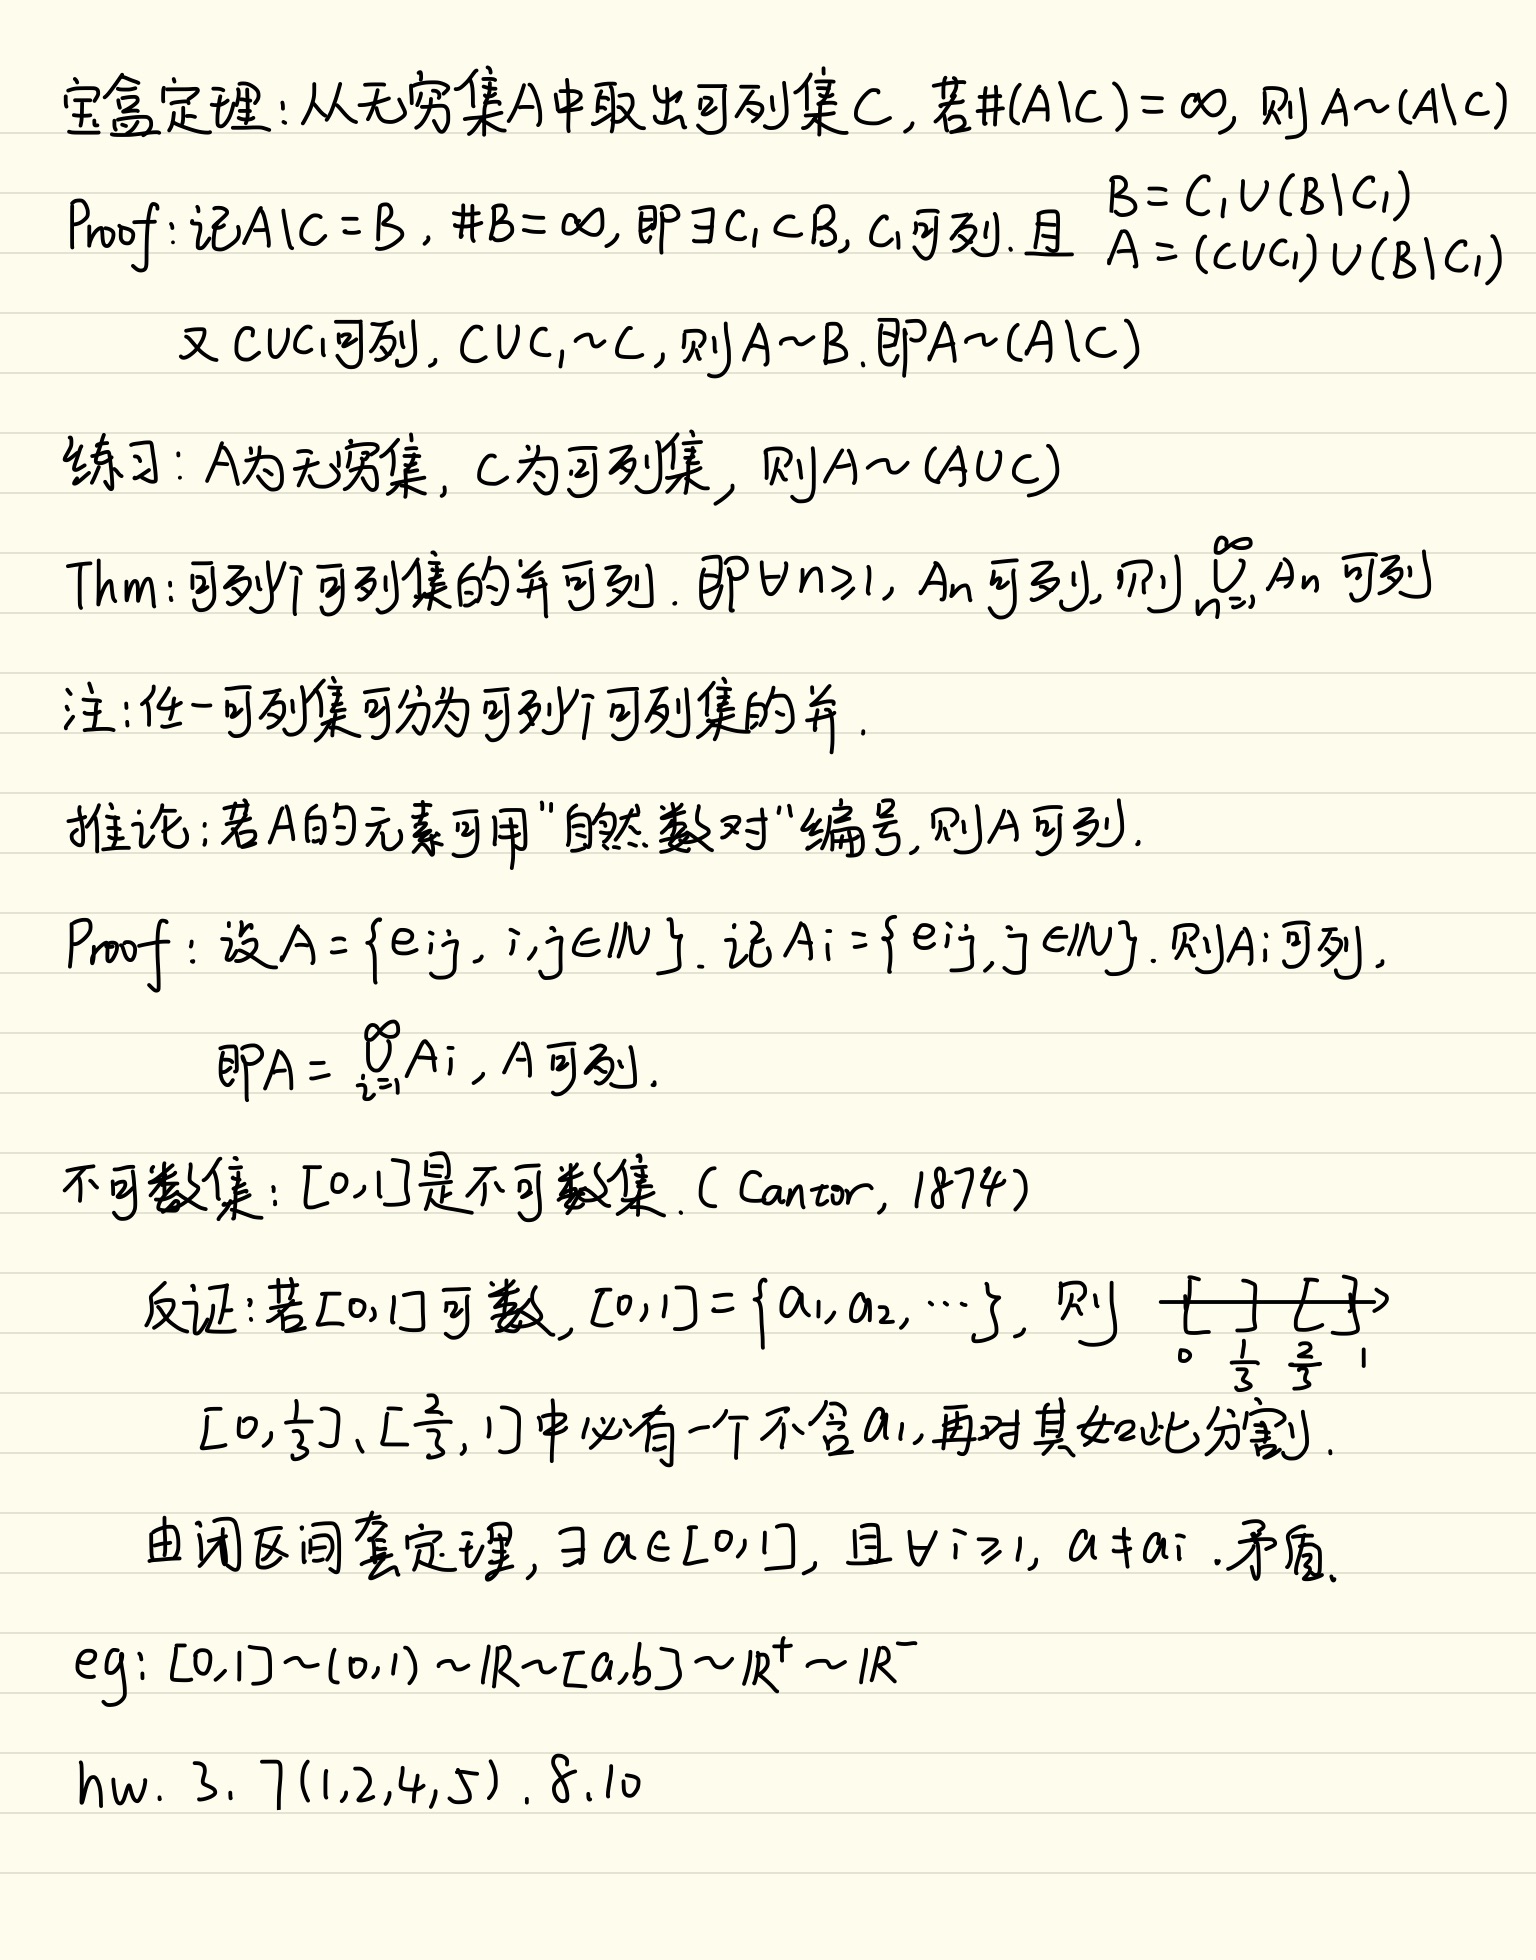 宝盒定理:从无穷集A中取出可列集C,若#(A\C)=∞,则A~(A\C)
Proof:记A\C=B,#B=∞,即∃C₁⊂B,C₁可列.且 B=C₁∪(B\C₁)
A=(C∪C₁)∪(B\C₁)
又C∪C₁可列,C∪C₁~C,则A~B.即A~(A\C)
练习:A为无穷集,C为可列集,则A~(A∪C)
Thm:可列个可列集的并可列.即∀n≥1,Aₙ可列,则∪_{n=1}^{∞}Aₙ可列
注:任一可列集可分为可列个可列集的并.
推论:若A的元素可用"自然数对"编号,则A可列.
Proof:设A={eij,i,j∈ℕ}.记Ai={eij,j∈ℕ}.则Ai可列.
即A=∪_{i=1}^{∞}Ai,A可列.
不可数集:[0,1]是不可数集.(Cantor,1874)
反证:若[0,1]可数,[0,1]={a₁,a₂,…},则
0 1/3 2/3 1
[0,1/3]、[2/3,1]中必有一个不含a₁,再对其如此分割.
由闭区间套定理,∃a∈[0,1],且∀i≥1,a≠ai.矛盾.
eg:[0,1]~(0,1)~ℝ~[a,b]~ℝ⁺~ℝ⁻
hw.3.7(1,2,4,5).8.10